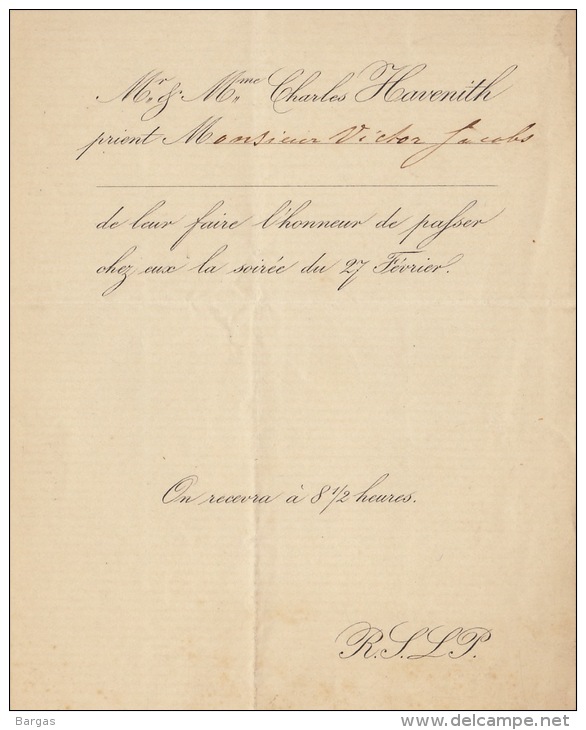 Mr. & Mme. Charles Havenith
prient Monsieur Victor Jacobs
de leur faire l'honneur de passer
chez eux la soirée du 27 Février.
On recevra à 8 1/2 heures.
R.S.L.P.
Bargas
www.delcampe.net